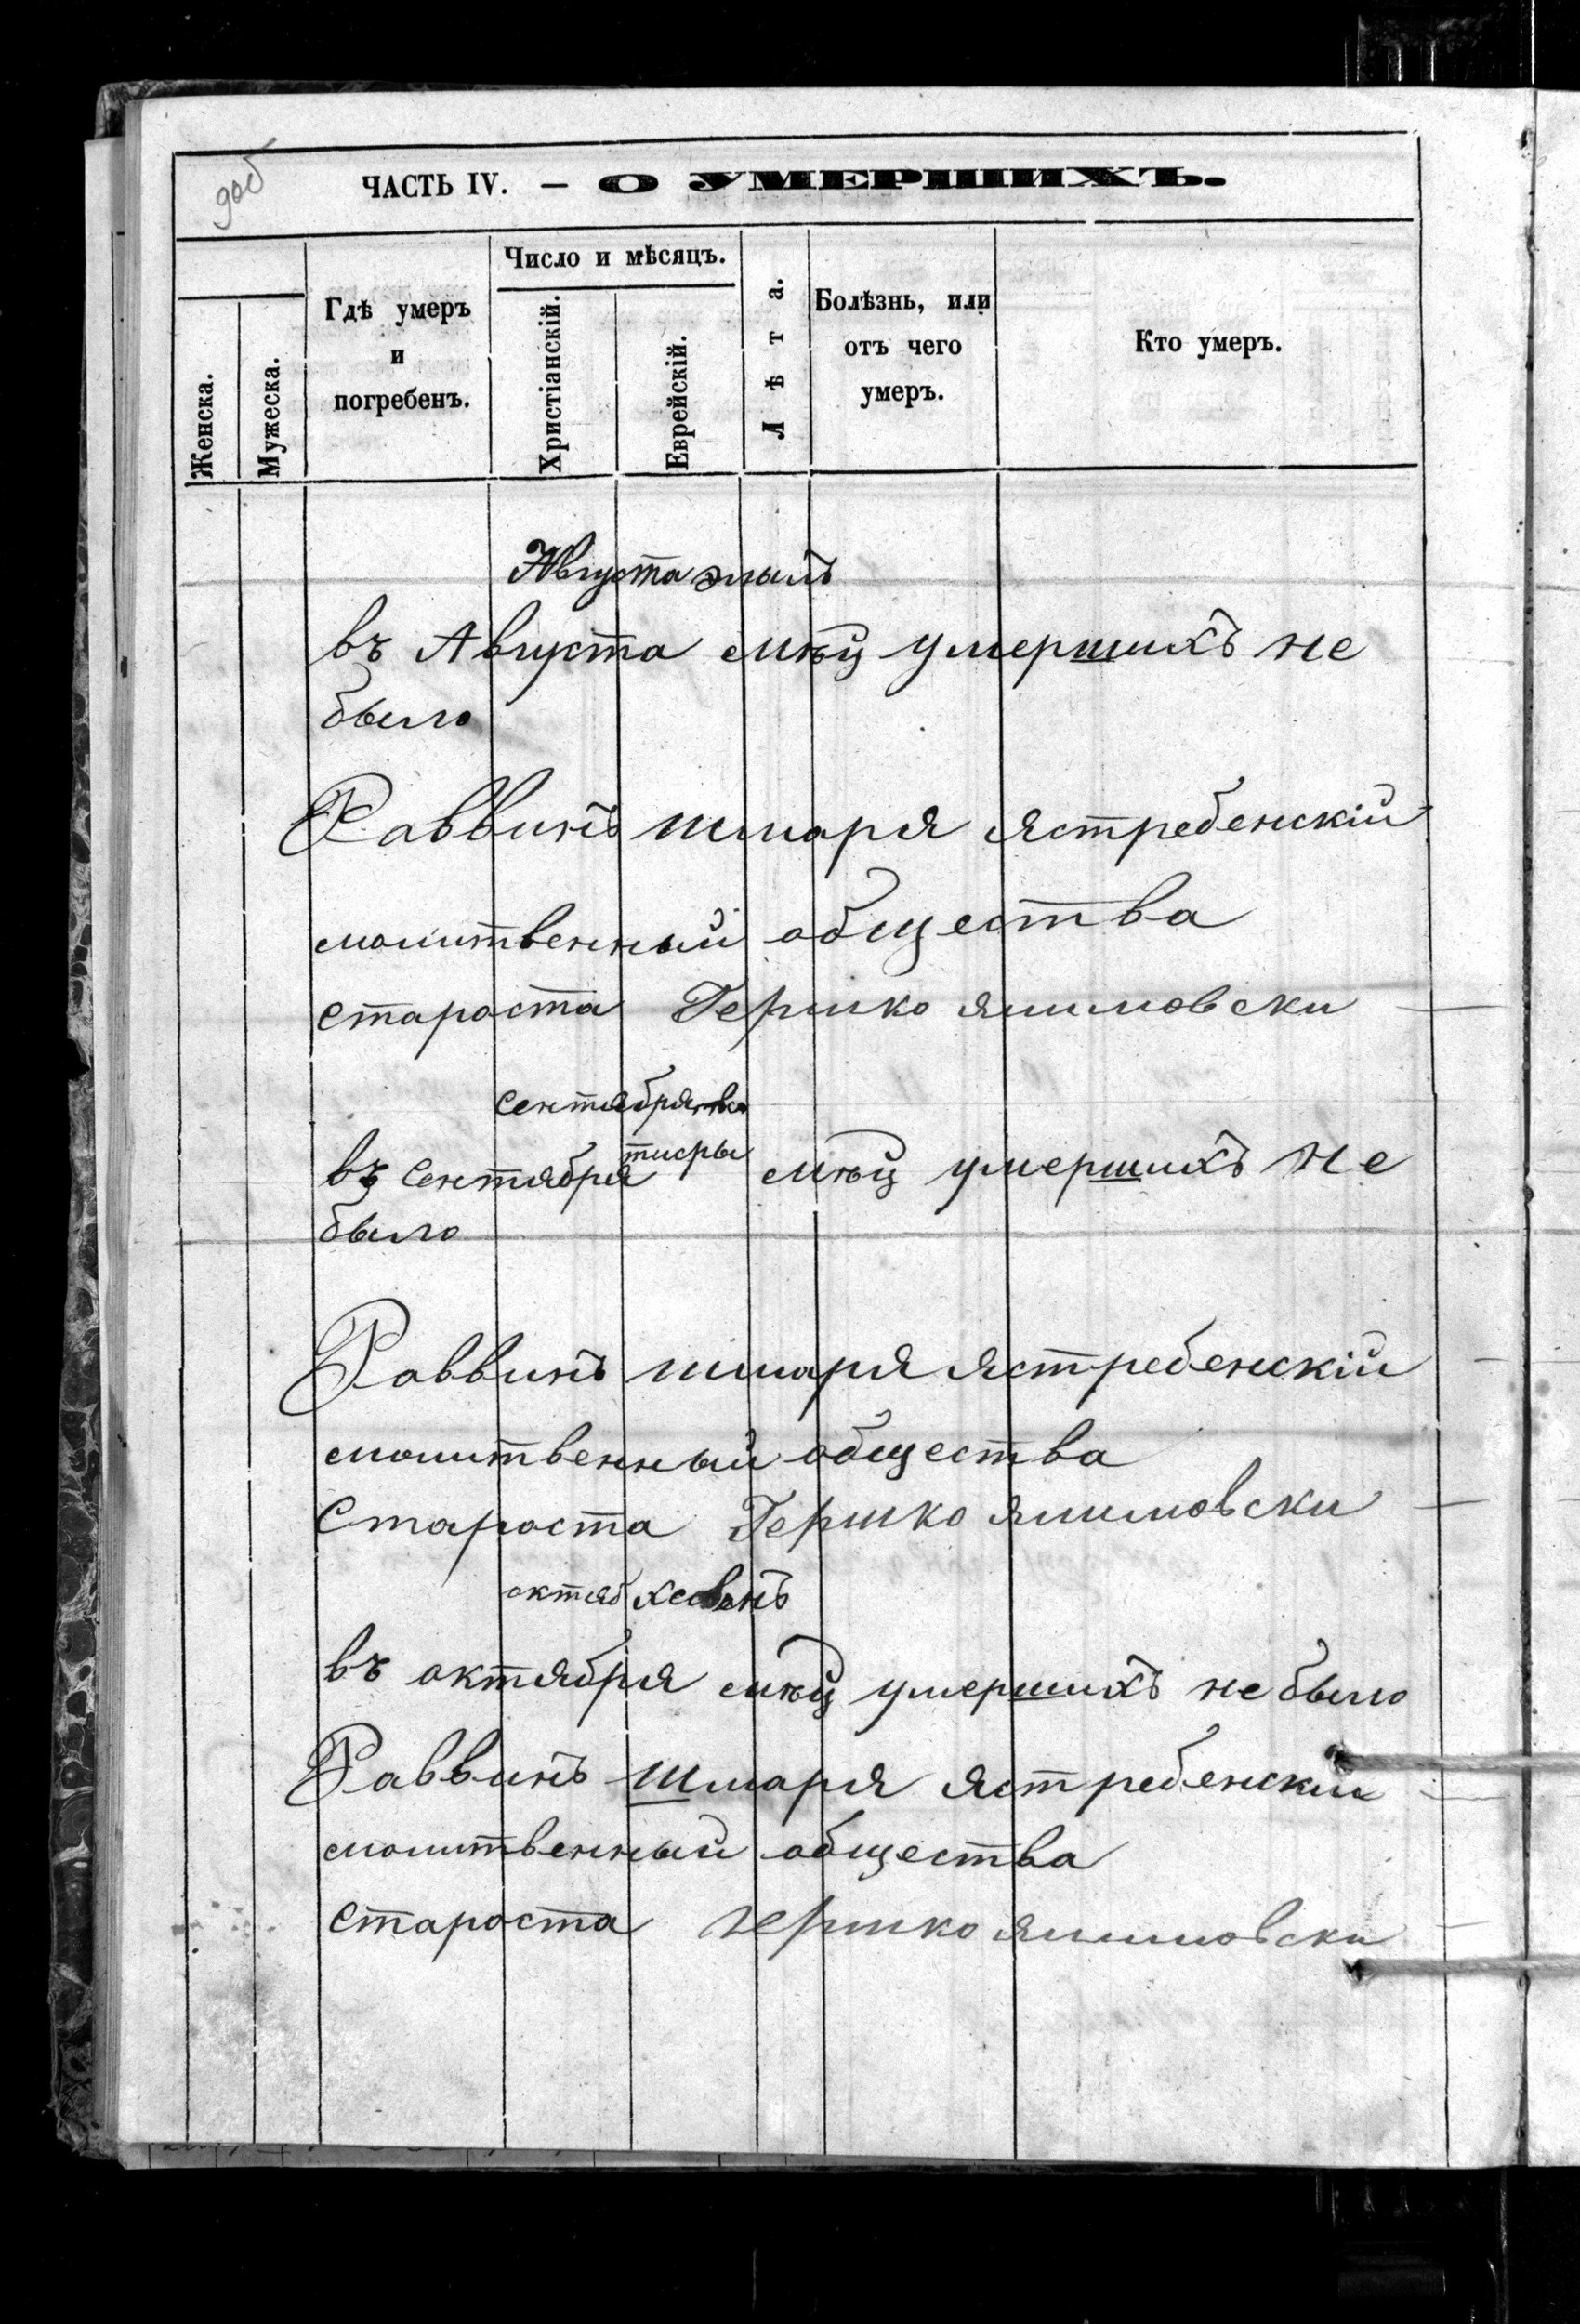 90об
ЧАСТЬ IV. — О УМЕРШИХЪ.
Женска.
Мужеска.
Гдѣ умеръ
и
погребенъ.
Число и мѣсяцъ.
Христіанскій.
Еврейскій.
Лѣта.
Болѣзнь, или
отъ чего
умеръ.
Кто умеръ.
Августа элылъ
въ Августа мѣц умершихъ не
было
Раввинъ шмаря Ястребенскій
молитвенный общества
староста Гершко
сентября
тисры
въ Сентября мѣц умершихъ не
было
Раввинъ шмаря Ястребенскій
молитвенный общества
Староста Гершко
октяб
въ октября мѣц умершихъ не было
Раввинъ шмаря Ястребенскій
молитвенный общества
староста гершко